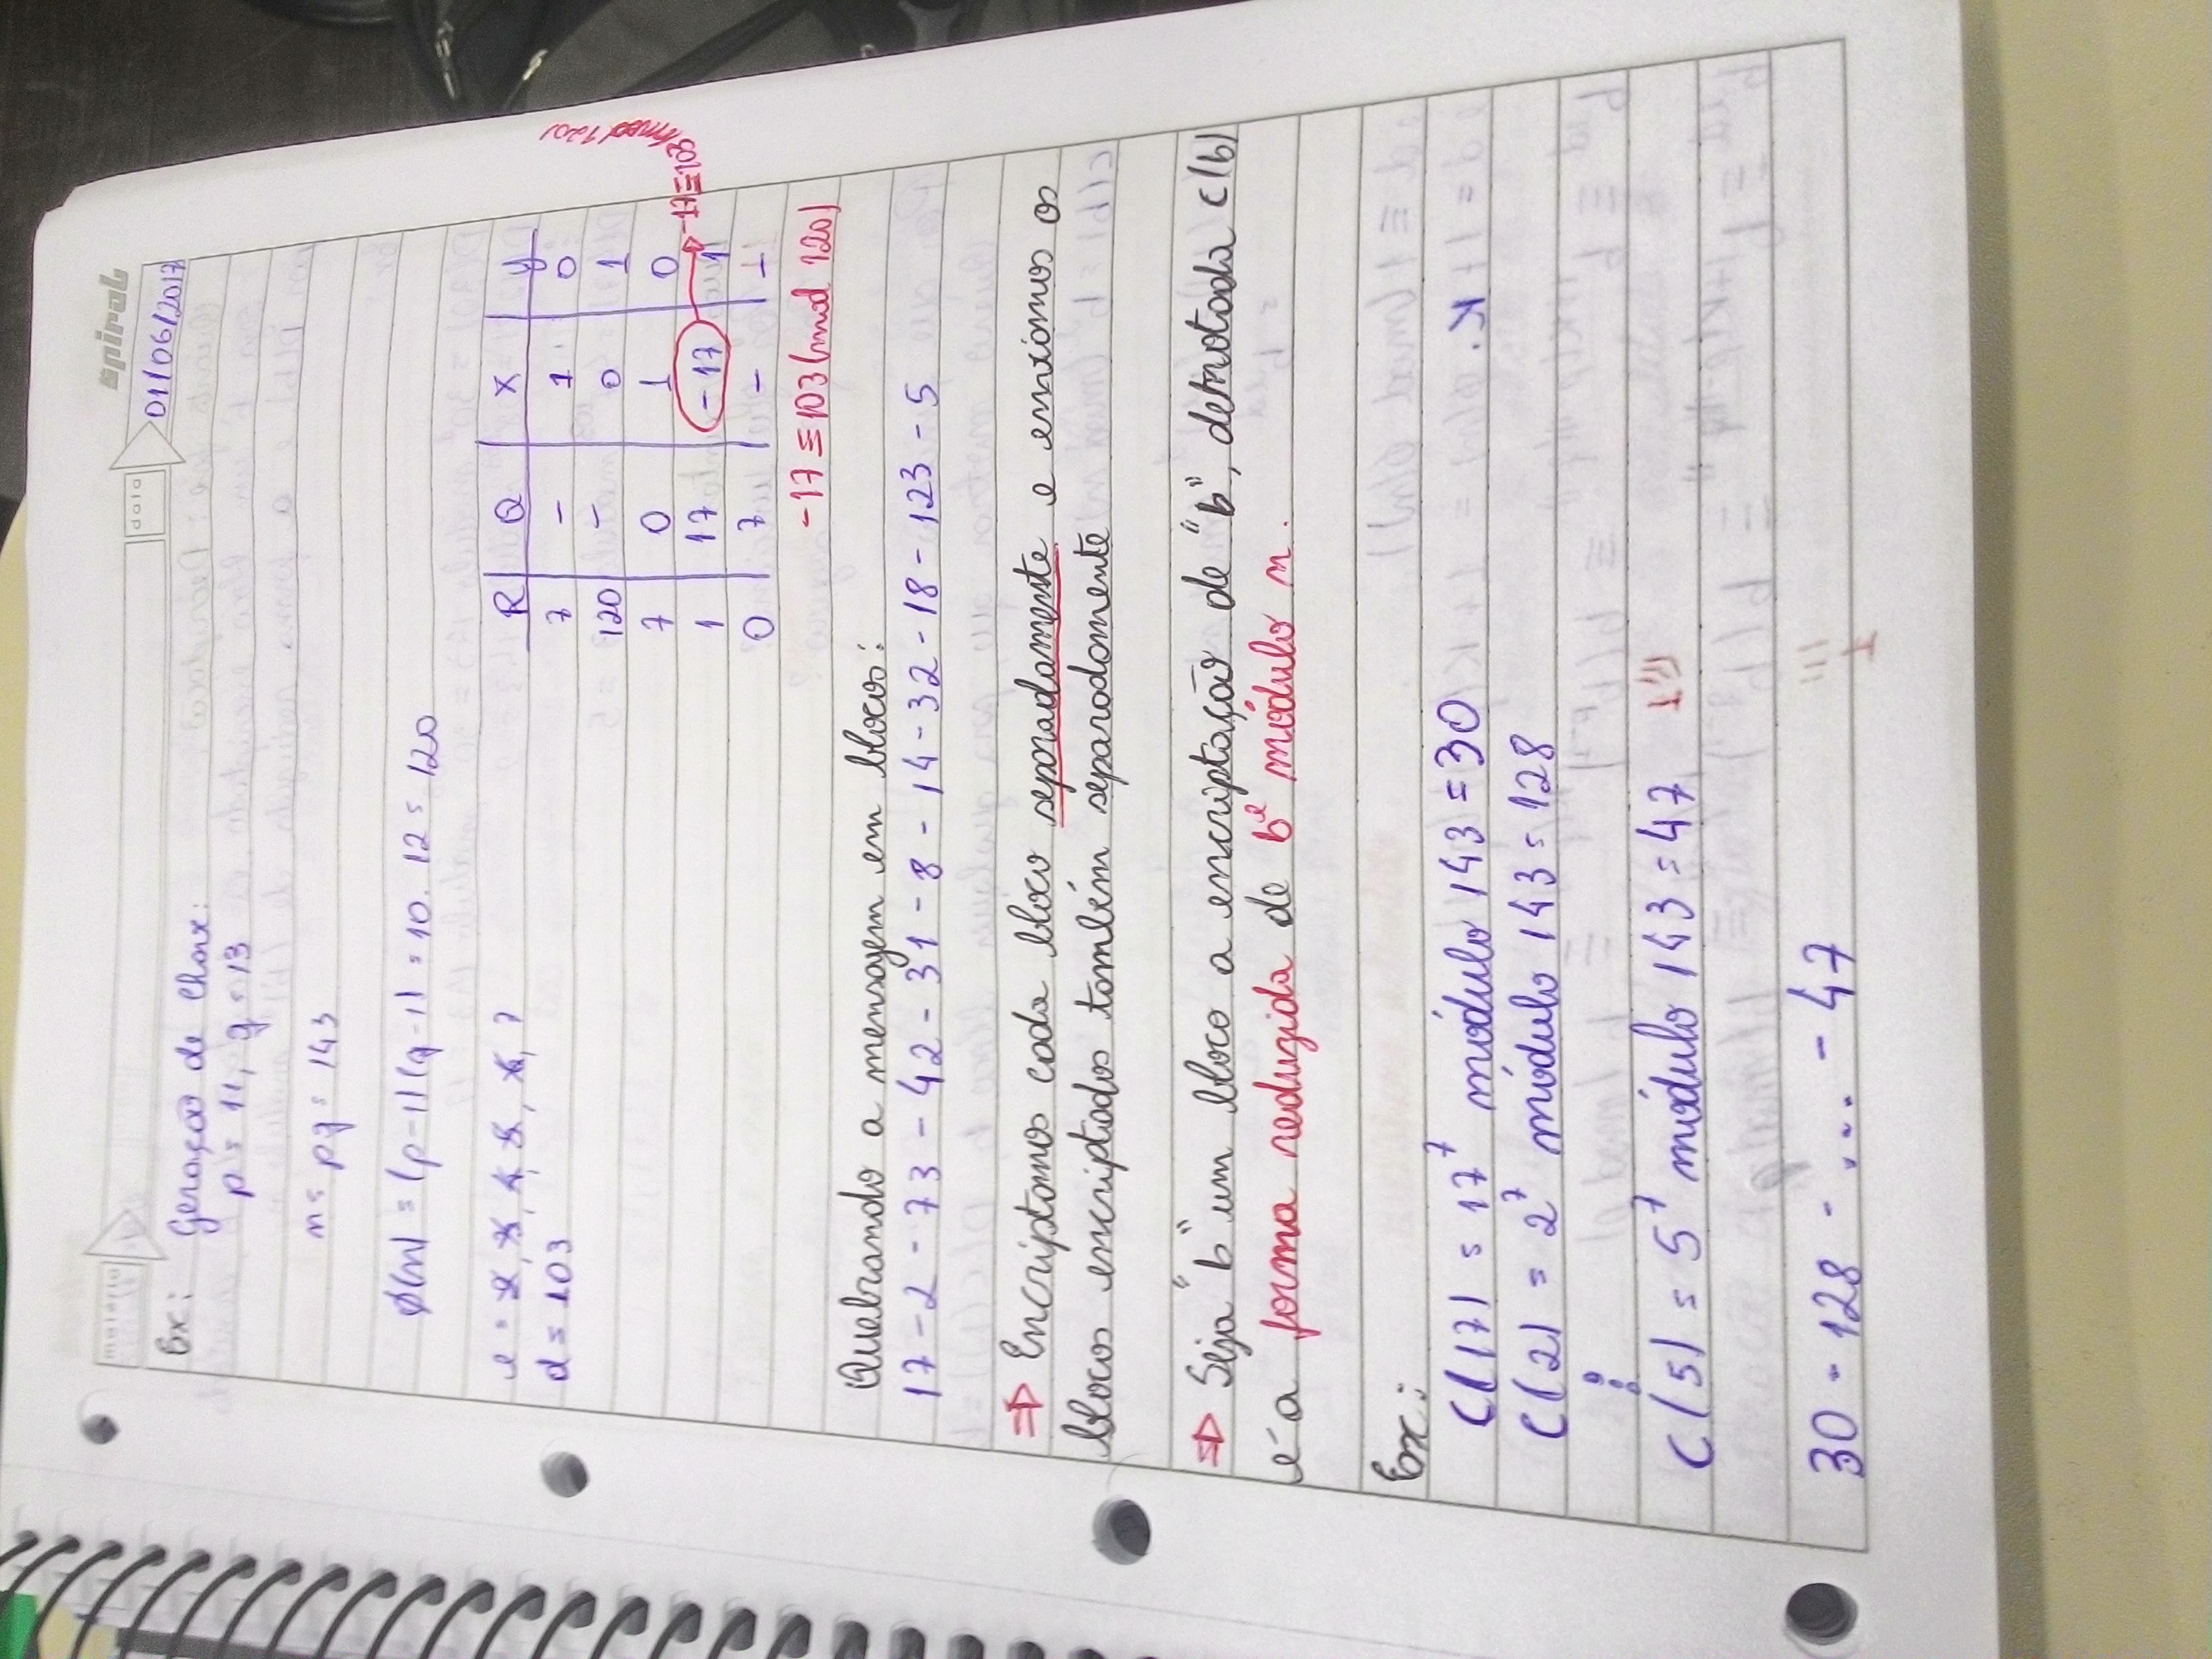 spiral
matéria
data
01/06/2017
Ex: Geração de Chave:
p = 11, q = 13
n = pq = 143
ϕ(n) = (p-1)(q-1) = 10. 12 = 120
e = 2, 3, 4, 5, 6, 7
d = 103
R Q X y
7 - 1 0
120 - 0 1
7 0 1 0
1 17 -17 1 -17≡103(mod 120)
0 7 - -
-17 ≡ 103 (mod 120)
Quebrando a mensagem em blocos:
17 - 2 - 73 - 42 - 31 - 8 - 14 - 32 - 18 - 123 - 5
⇒ Encriptamos cada bloco separadamente e enviamos os
blocos encriptados também separadamente
⇒ Seja "b" um bloco a encriptação de "b", detnotada C(b)
é a forma reduzida de bᵉ módulo n.
Ex:
C(17) = 17⁷ módulo 143 = 30
C(2) = 2⁷ módulo 143 = 128
⋮
C(5) = 5⁷ módulo 143 = 47
30 - 128 - ... - 47